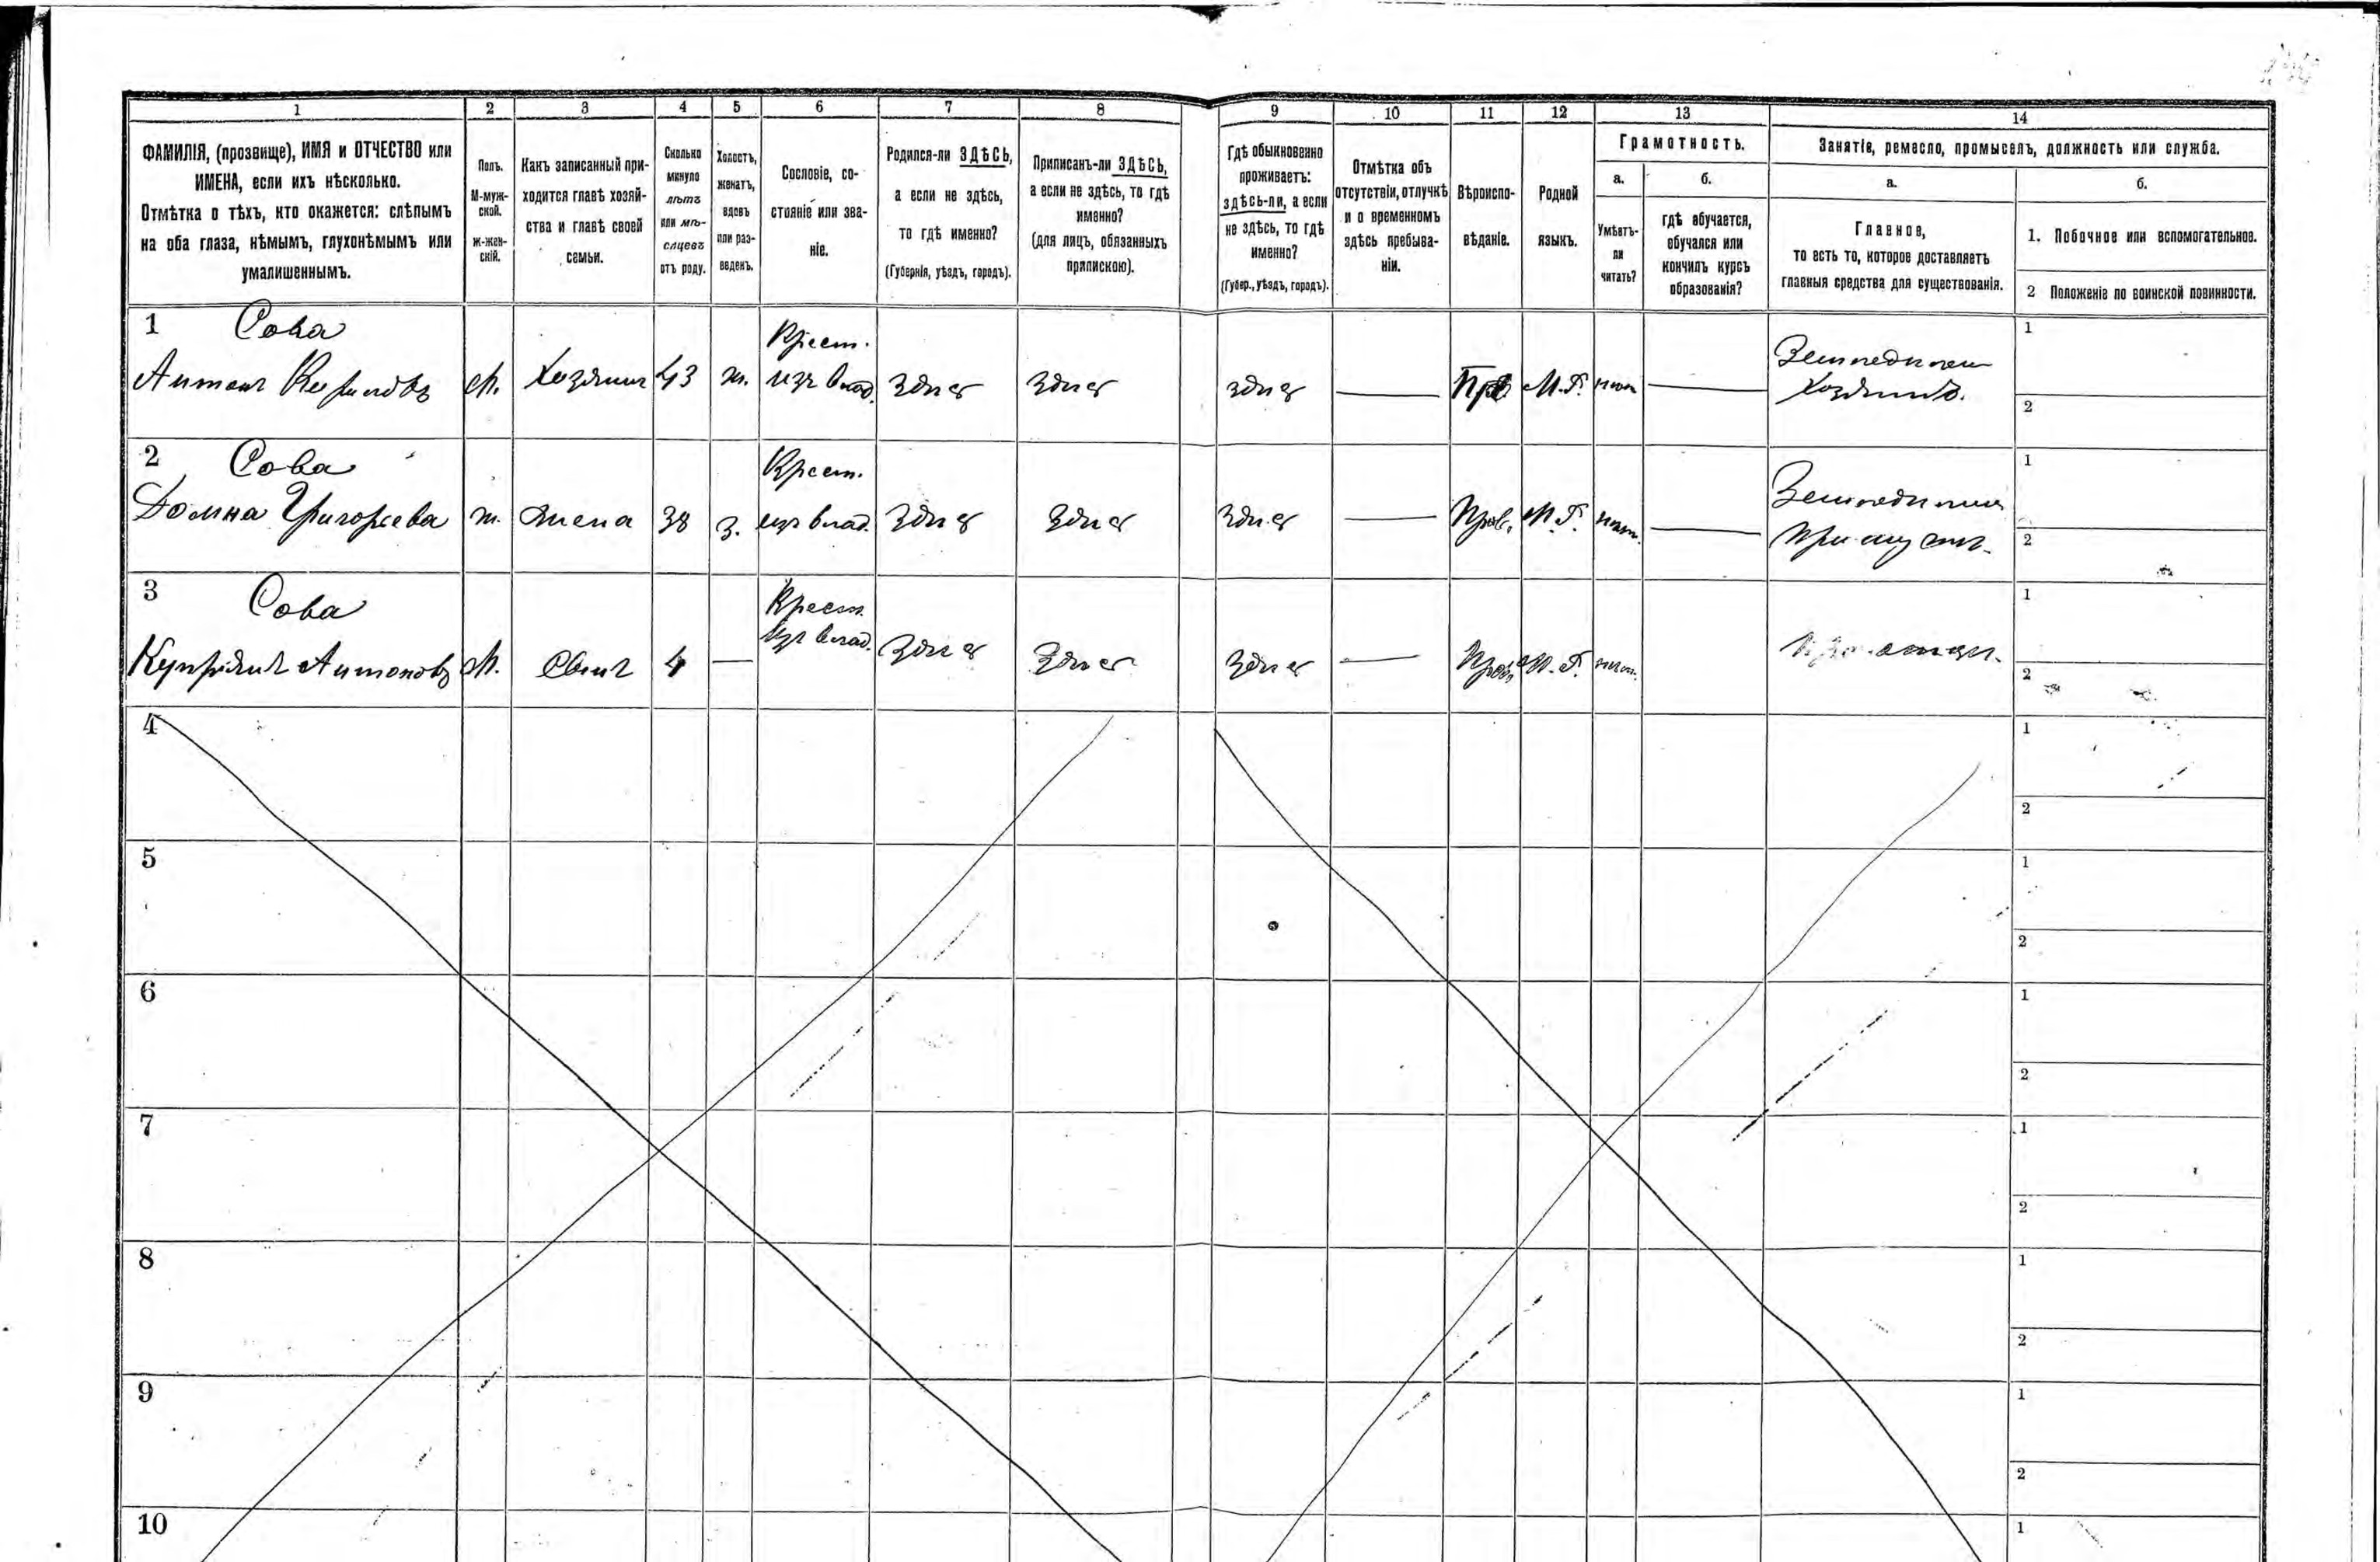 1 2 3 4 5 6 7 8 9 10 11 12 13 14
ФАМИЛІЯ, (прозвище), ИМЯ и ОТЧЕСТВО или
ИМЕНА, если ихъ нѣсколько.
Отмѣтка о тѣхъ, кто окажется: слѣпымъ
на оба глаза, нѣмымъ, глухонѣмымъ или
умалишеннымъ.
Полъ.
М-муж-
ской.
ж-жен-
скій.
Какъ записанный при-
ходится главѣ хозяй-
ства и главѣ своей
семьи.
Сколько
минуло
лѣтъ
или мѣ-
сяцевъ
отъ роду.
Холостъ,
женатъ,
вдовъ
или раз-
веденъ.
Сословіе, со-
стояніе или зва-
ніе.
Родился-ли ЗДѢСЬ,
а если не здѣсь,
то гдѣ именно?
(Губернія, уѣздъ, городъ).
Приписанъ-ли ЗДѢСЬ,
а если не здѣсь, то гдѣ
именно?
(для лицъ, обязанныхъ
припискою).
Гдѣ обыкновенно
проживаетъ:
здѣсь-ли, а если
не здѣсь, то гдѣ
именно?
(Губер., уѣздъ, городъ).
Отмѣтка объ
отсутствіи, отлучкѣ
и о временномъ
здѣсь пребыва-
ніи.
Вѣроиспо-
вѣданіе.
Родной
языкъ.
Грамотность.
а.
Умѣетъ-
ли
читать?
б.
гдѣ обучается,
обучался или
кончилъ курсъ
образованія?
Занятіе, ремесло, промыселъ, должность или служба.
а.
Главное,
то есть то, которое доставляетъ
главныя средства для существованія.
б.
1. Побочное или вспомогательное.
2 Положеніе по воинской повинности.
1 Сова
Антонъ М. Хозяинъ 43 ж. Крест.
изъ влад. здѣсь здѣсь здѣсь — Пр М.Р. нѣт — Земледѣлец
хозяинъ.
1
2
2 Сова
Домна Григорьева ж. жена 38 з. Крест.
изъ влад. здѣсь здѣсь здѣсь — Прав. М.Р. нѣт. —
1
2
3 Сова
Купріянъ Антоновъ М. сынъ 4 — Крест.
изъ влад. здѣсь здѣсь здѣсь — Прав. М.Р. нѣт. При отцѣ.
1
2
4
1
2
5
1
2
6
1
2
7
1
2
8
1
2
9
1
2
10
1